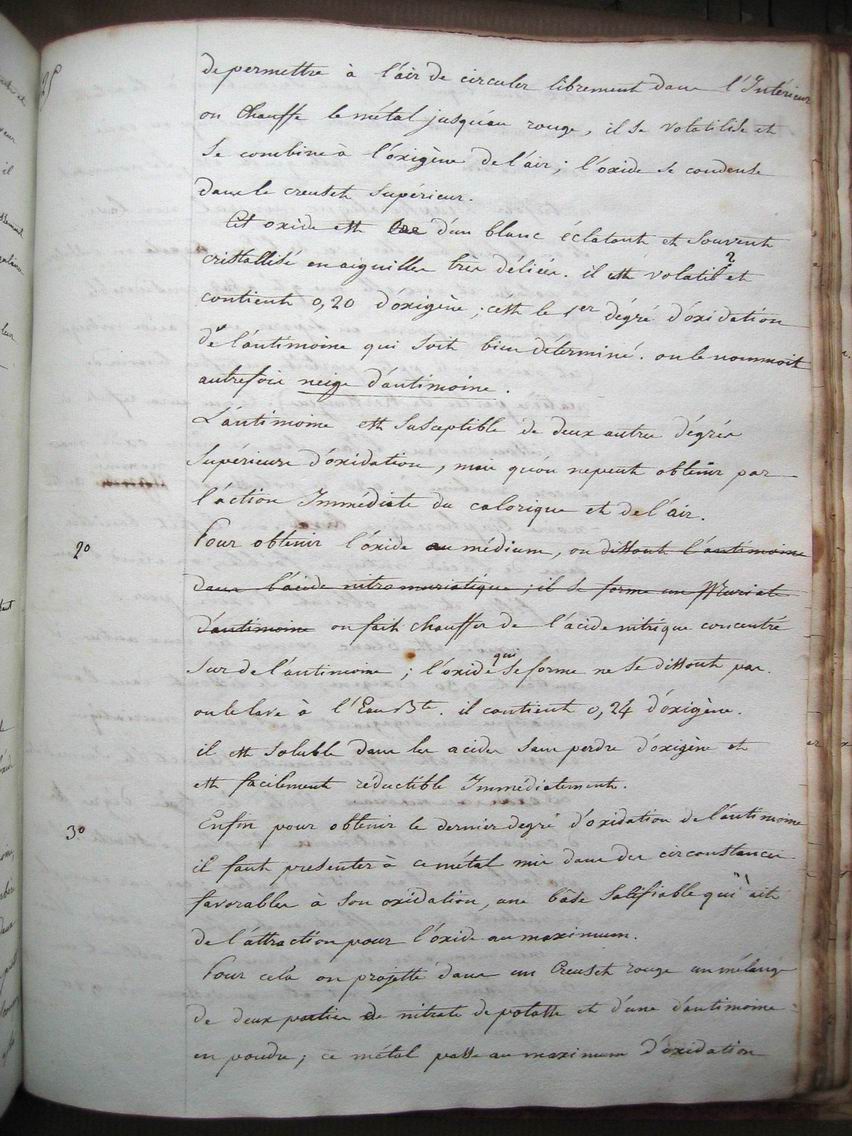 de permettre à l'air de circuler librement dans l'Intérieur
on chauffe le métal jusqu'au rouge, il se volatilise et
se combine à l'oxigène de l'air ; l'oxide se condense
dans le creuset supérieur.
Cet oxide est d'un blanc éclatant et souvent
cristallisé en aiguilles tres déliées. il est volatil et
contient 0,20 d'oxigène ; c'est le 1er dégré d'oxidation
de l'antimoine qui soit bien déterminé. on le nommoit
autrefois neige d'antimoine.
L'antimoine est susceptible de deux autres dégrés
supérieurs d'oxidation, mais qu'on ne peut obtenir par
l'action Immédiate du calorique et de l'air.
2o Pour obtenir l'oxide au médium, on dissout l'antimoine
dans l'acide nitromuriatique ; il se forme un Muriate
d'antimoine on fait chauffer de l'acide nitrique concentré
sur de l'antimoine ; l'oxide qui se forme ne se dissout pas.
on le lave à l'Eau Bte. il contient 0,24 d'oxigène.
il est soluble dans les acides sans perdre d'oxigène et
est facilement réductible Immédiatement.
3o Enfin pour obtenir le dernier degré d'oxidation de l'antimoine
il faut presenter à ce métal mis dans des circonstances
favorables à son oxidation, une base salifiable qui ait
de l'attraction pour l'oxide au maximum.
Pour cela on projette dans un Creuset rouge un mélange
de deux parties de nitrate de potasse et d'une d'antimoine
en poudre ; ce métal passe au maximum d'oxidation